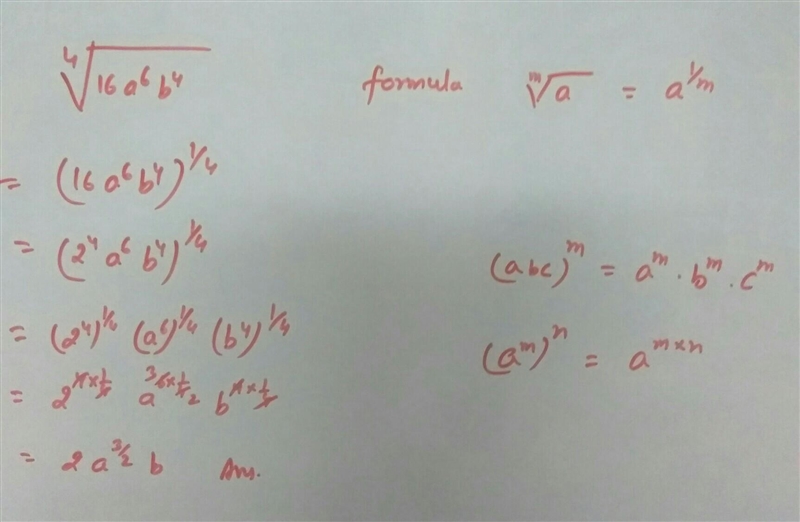 ∜(16a⁶b⁴) formula ᵐ√a = a^(1/m)
= (16a⁶b⁴)^(1/4)
= (2⁴a⁶b⁴)^(1/4)
(abc)ᵐ = aᵐ · bᵐ · cᵐ
= (2⁴)^(1/4) (a⁶)^(1/4) (b⁴)^(1/4)
(aᵐ)ⁿ = a^(m×n)
= 2^(4×1/4) a^(6×1/4) b^(4×1/4)
= 2a^(3/2) b Ans.